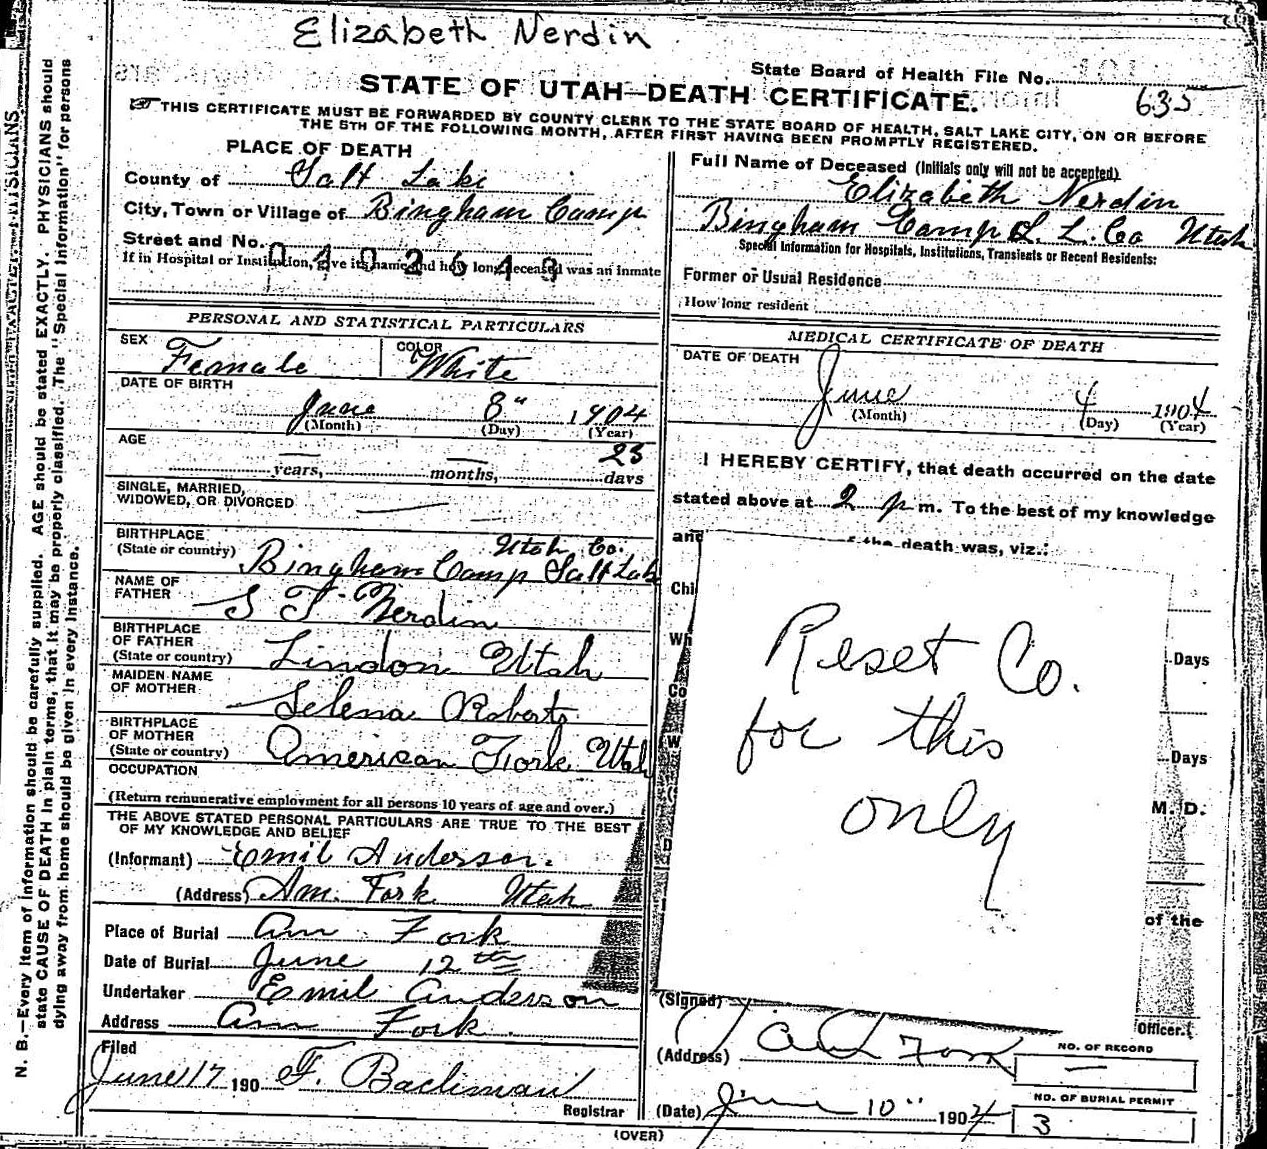 Elizabeth Nerdin
State Board of Health File No.
STATE OF UTAH—DEATH CERTIFICATE.
635
THIS CERTIFICATE MUST BE FORWARDED BY COUNTY CLERK TO THE STATE BOARD OF HEALTH, SALT LAKE CITY, ON OR BEFORE
THE 5TH OF THE FOLLOWING MONTH, AFTER FIRST HAVING BEEN PROMPTLY REGISTERED.
PLACE OF DEATH
County of Salt Lake
City, Town or Village of Bingham Camp
Street and No.
0402648
If in Hospital or Institution, give its name and how long deceased was an inmate
PERSONAL AND STATISTICAL PARTICULARS
SEX Female COLOR White
DATE OF BIRTH
June 8" 1904
(Month) (Day) (Year)
AGE 23
years, months, days
SINGLE, MARRIED,
WIDOWED, OR DIVORCED
BIRTHPLACE Utah Co.
(State or country) Bingham Camp Salt Lake
NAME OF
FATHER S T Nerdin
BIRTHPLACE
OF FATHER
(State or country) Lindon Utah
MAIDEN NAME
OF MOTHER Selena Roberts
BIRTHPLACE
OF MOTHER
(State or country) American Fork Utah
OCCUPATION
(Return remunerative employment for all persons 10 years of age and over.)
THE ABOVE STATED PERSONAL PARTICULARS ARE TRUE TO THE BEST
OF MY KNOWLEDGE AND BELIEF
(Informant) Emil Anderson.
(Address) Am. Fork Utah
Place of Burial Am Fork
Date of Burial June 12th
Undertaker Emil Anderson
Address Am Fork
Filed
June 17 190 F. Bachman
Registrar
Full Name of Deceased (Initials only will not be accepted)
Elizabeth Nerdin
Bingham Camp S. L. Co Utah
Special Information for Hospitals, Institutions, Transients or Recent Residents:
Former or Usual Residence
How long resident
MEDICAL CERTIFICATE OF DEATH
DATE OF DEATH
June 4 1904
(Month) (Day) (Year)
I HEREBY CERTIFY, that death occurred on the date
stated above at 2 p m. To the best of my knowledge
and of the death was, viz.:
Chi
Wh
Days
Co
(W
Days
M. D.
of the
Reset Co.
for this
only
(Signed)
Officer.
(Address)
NO. OF RECORD
—
(Date) June 10" 1904
NO. OF BURIAL PERMIT
3
(OVER)
N. B.—Every item of information should be carefully supplied. AGE should be stated EXACTLY. PHYSICIANS should
state CAUSE OF DEATH in plain terms, that it may be properly classified. The "Special Information" for persons
dying away from home should be given in every instance.